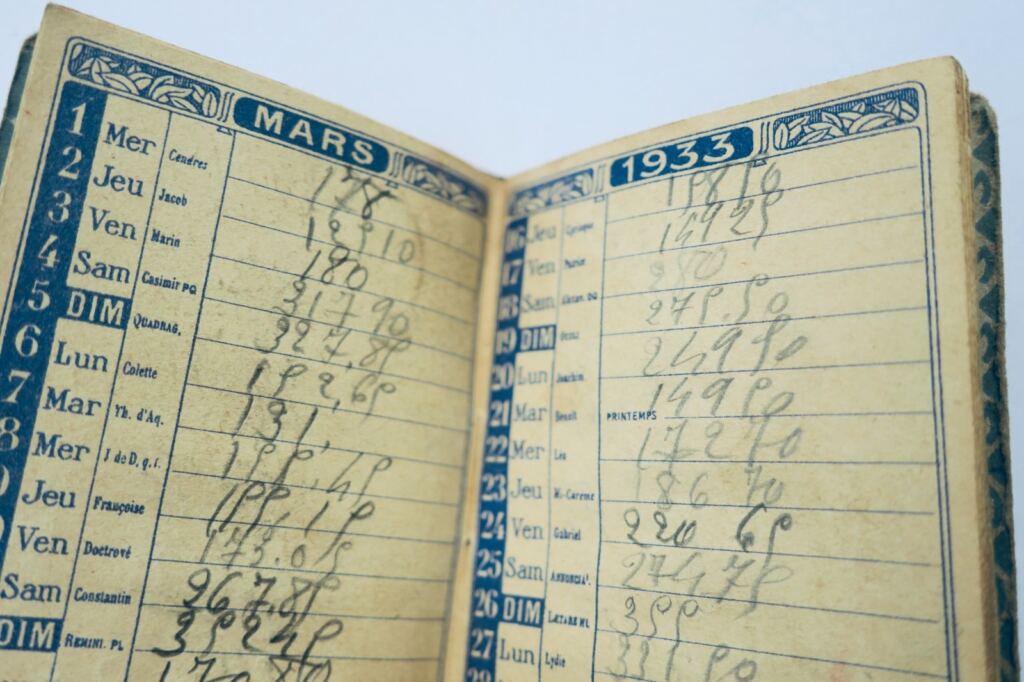 MARS
1 Mer Cendres 178
2 Jeu Jacob 155 10
3 Ven Marin 180
4 Sam Casimir PQ 317 90
5 DIM QUADRAG. 327,85
6 Lun Colette 152,65
7 Mar Th. d'Aq. 131,
8 Mer J de D. q.t. 155,45
Jeu Françoise 155,15
Ven Doctrové 173.05
Sam Constantin 267,85
DIM REMINI. PL 352 45
170 80
1933
16 Jeu Cyriaque 158 50
17 Ven 149 25
18 Sam DQ 280
19 DIM 275.50
20 Lun Joachim 249 50
21 Mar Benoît PRINTEMPS 149 50
22 Mer Léa 172 70
23 Jeu Mi-Carême 186 70
24 Ven Gabriel 220 65
25 Sam ANNONCIAt. 274 75
26 DIM LÆTARE NL 355
27 Lun Lydie 331 50
28